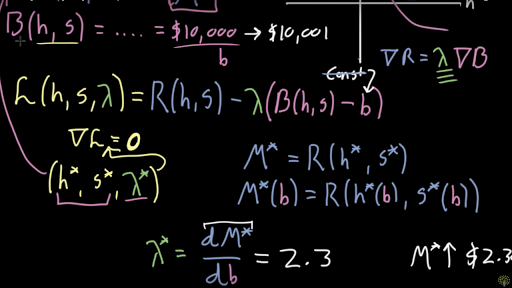 B(h, s) = .... = $10,000 → $10,001
b
∇R = λ∇B
Const
L(h, s, λ) = R(h, s) - λ(B(h, s) - b)
∇L = 0
(h*, s*, λ*)
M* = R(h*, s*)
M*(b) = R(h*(b), s*(b))
λ* = dM*/db = 2.3
M*↑ $2.3